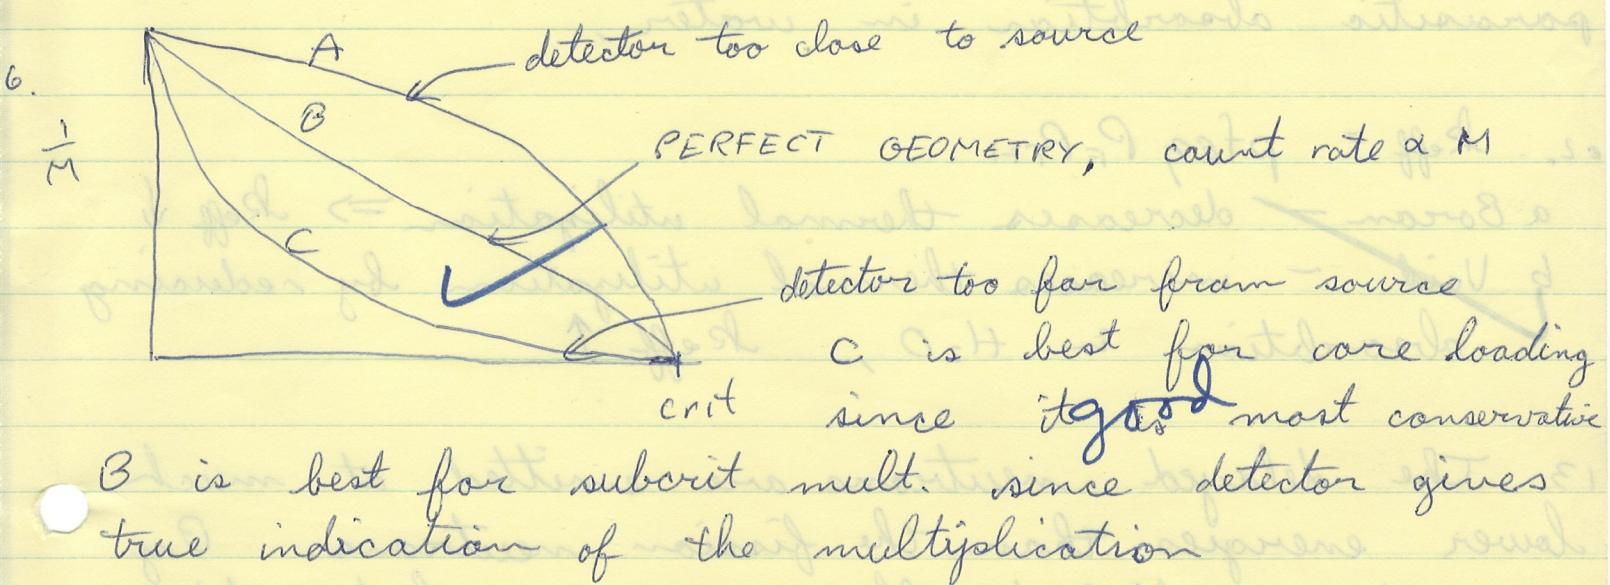 6.
A
detector too close to source
B
1/M
PERFECT GEOMETRY, count rate α M
C
detector too far from source
C is best for core loading
crit
since it is most conservative
good
B is best for subcrit mult. since detector gives
true indication of the multiplication